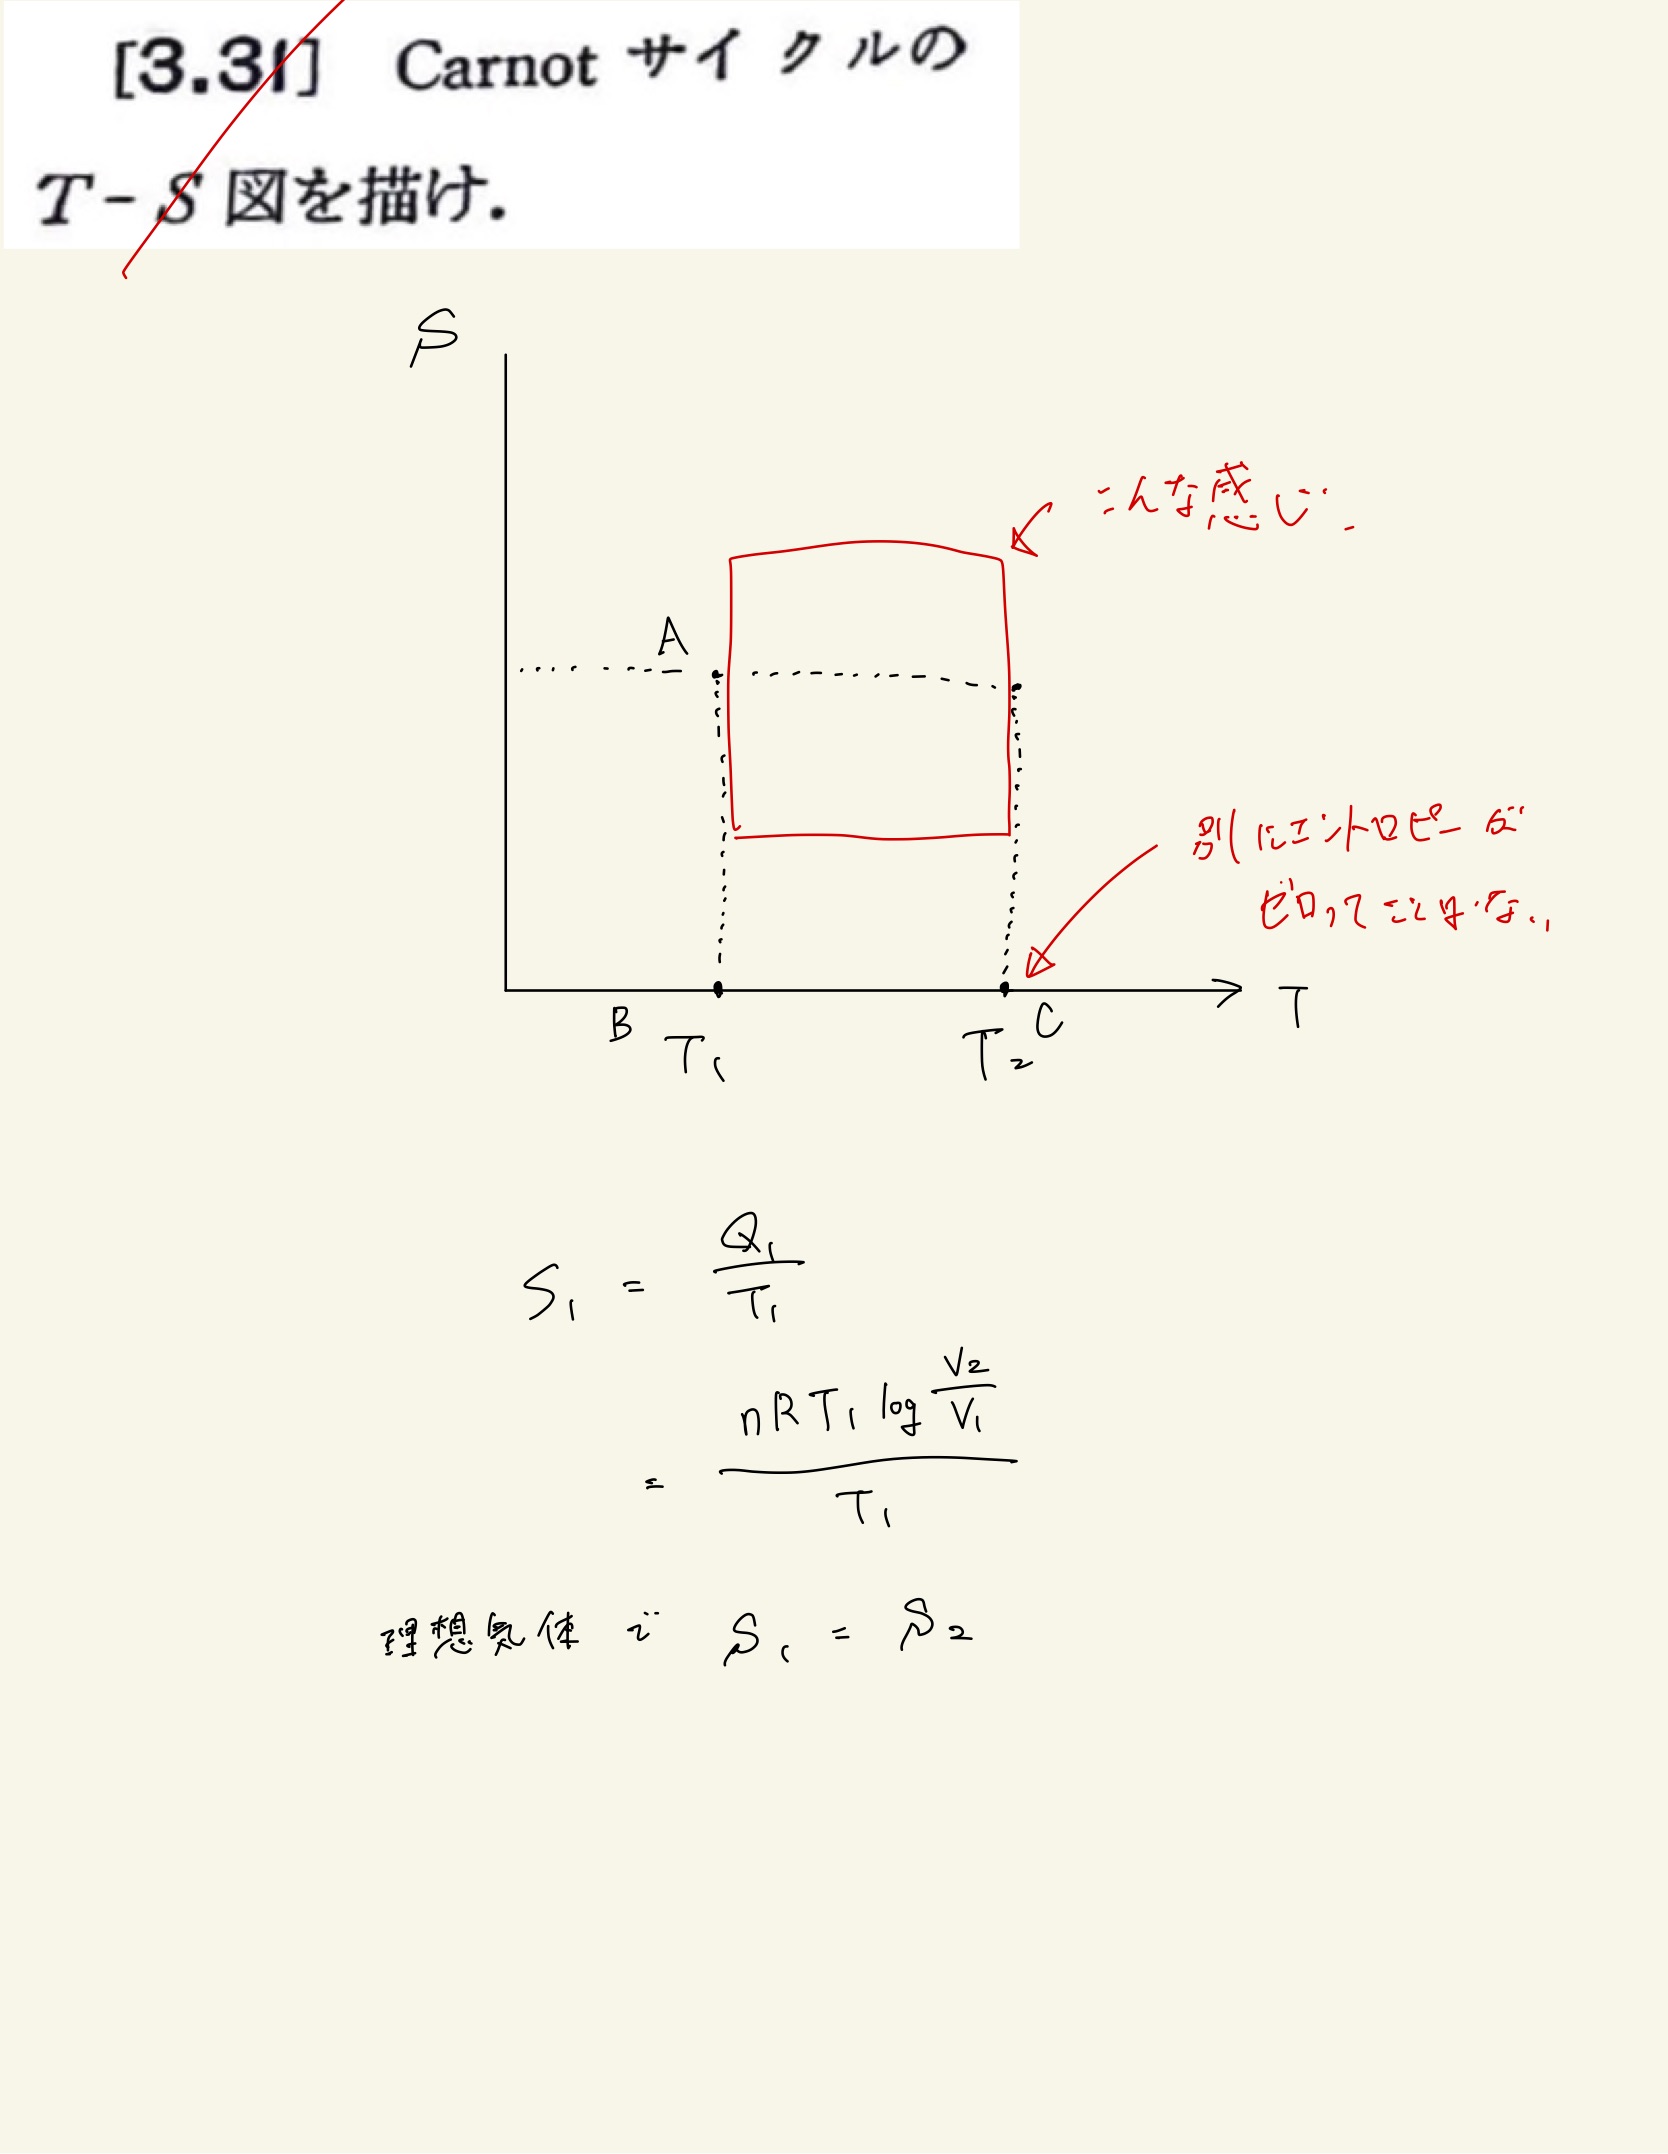 [3.31] Carnot サイクルの
T-S 図を描け.
S
こんな感じ.
A
別にエントロピーが
ゼロってことはない
T
B T₁ T₂ C
S₁ = Q₁/T₁
= nRT₁ log V₂/V₁ / T₁
理想気体で S₁ = S₂